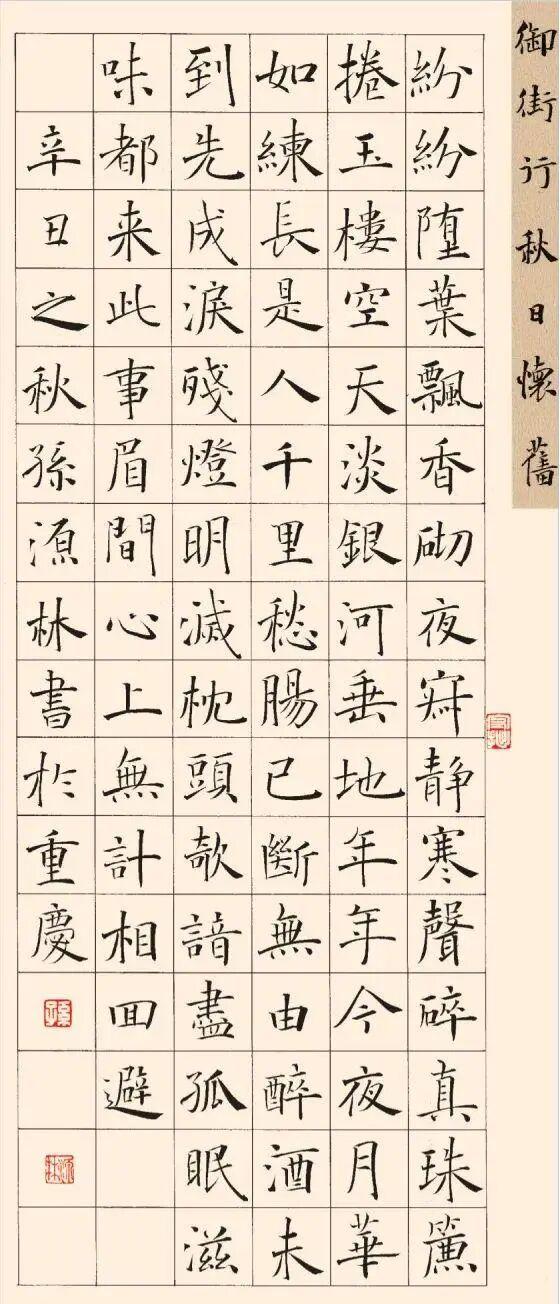 御街行秋日懷舊
紛紛墮葉飄香砌夜寂静寒聲碎真珠簾
捲玉樓空天淡銀河垂地年年今夜月華
如練長是人千里愁腸已斷無由醉酒未
到先成淚殘燈明滅枕頭欹諳盡孤眠滋
味都来此事眉間心上無計相回避
辛丑之秋孫源林書於重慶